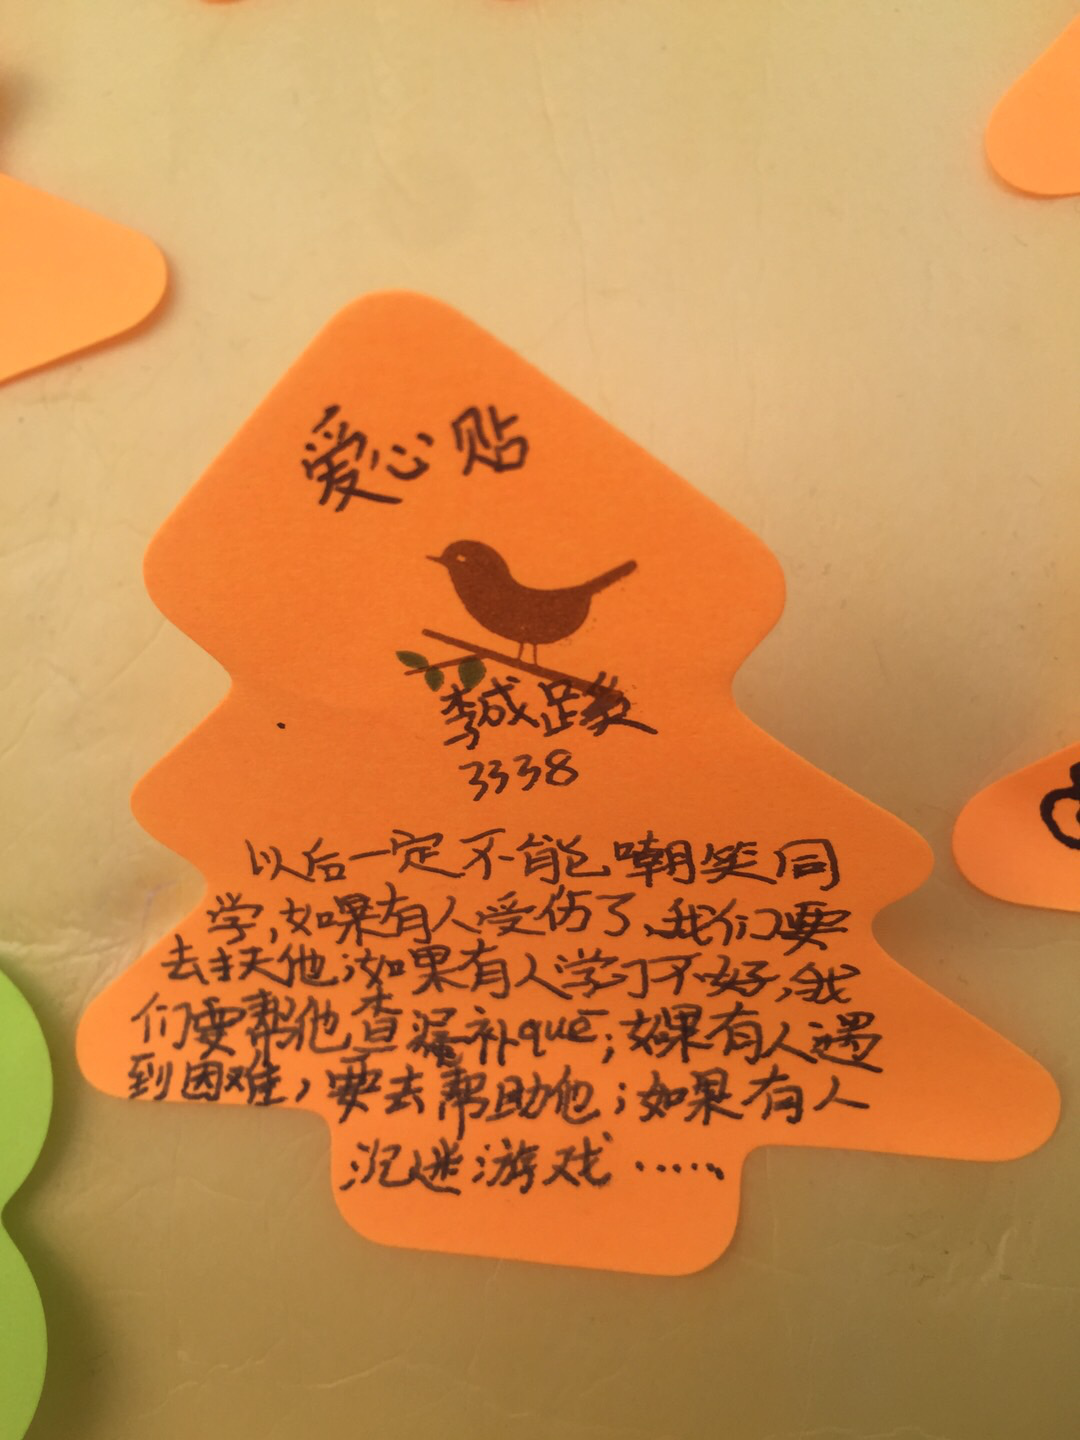 爱心贴
李成
3338
以后一定不能嘲笑同
学,如果有人受伤了,我们要
去扶他;如果有人学习不好,我
们要帮他查漏补quē;如果有人遇
到困难,要去帮助他;如果有人
沉迷游戏……